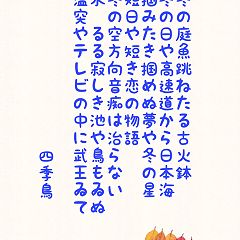 冬の庭魚跳ねたる古火鉢
冬の日や高速道から日本海
掴みたき掴めぬ夢や冬の星
短日や短き恋の物語
冬の空方向音痴は治らない
水　るる寂しき池や鳥もゐぬ
温突やテレビの中に武王ゐて
四季鳥